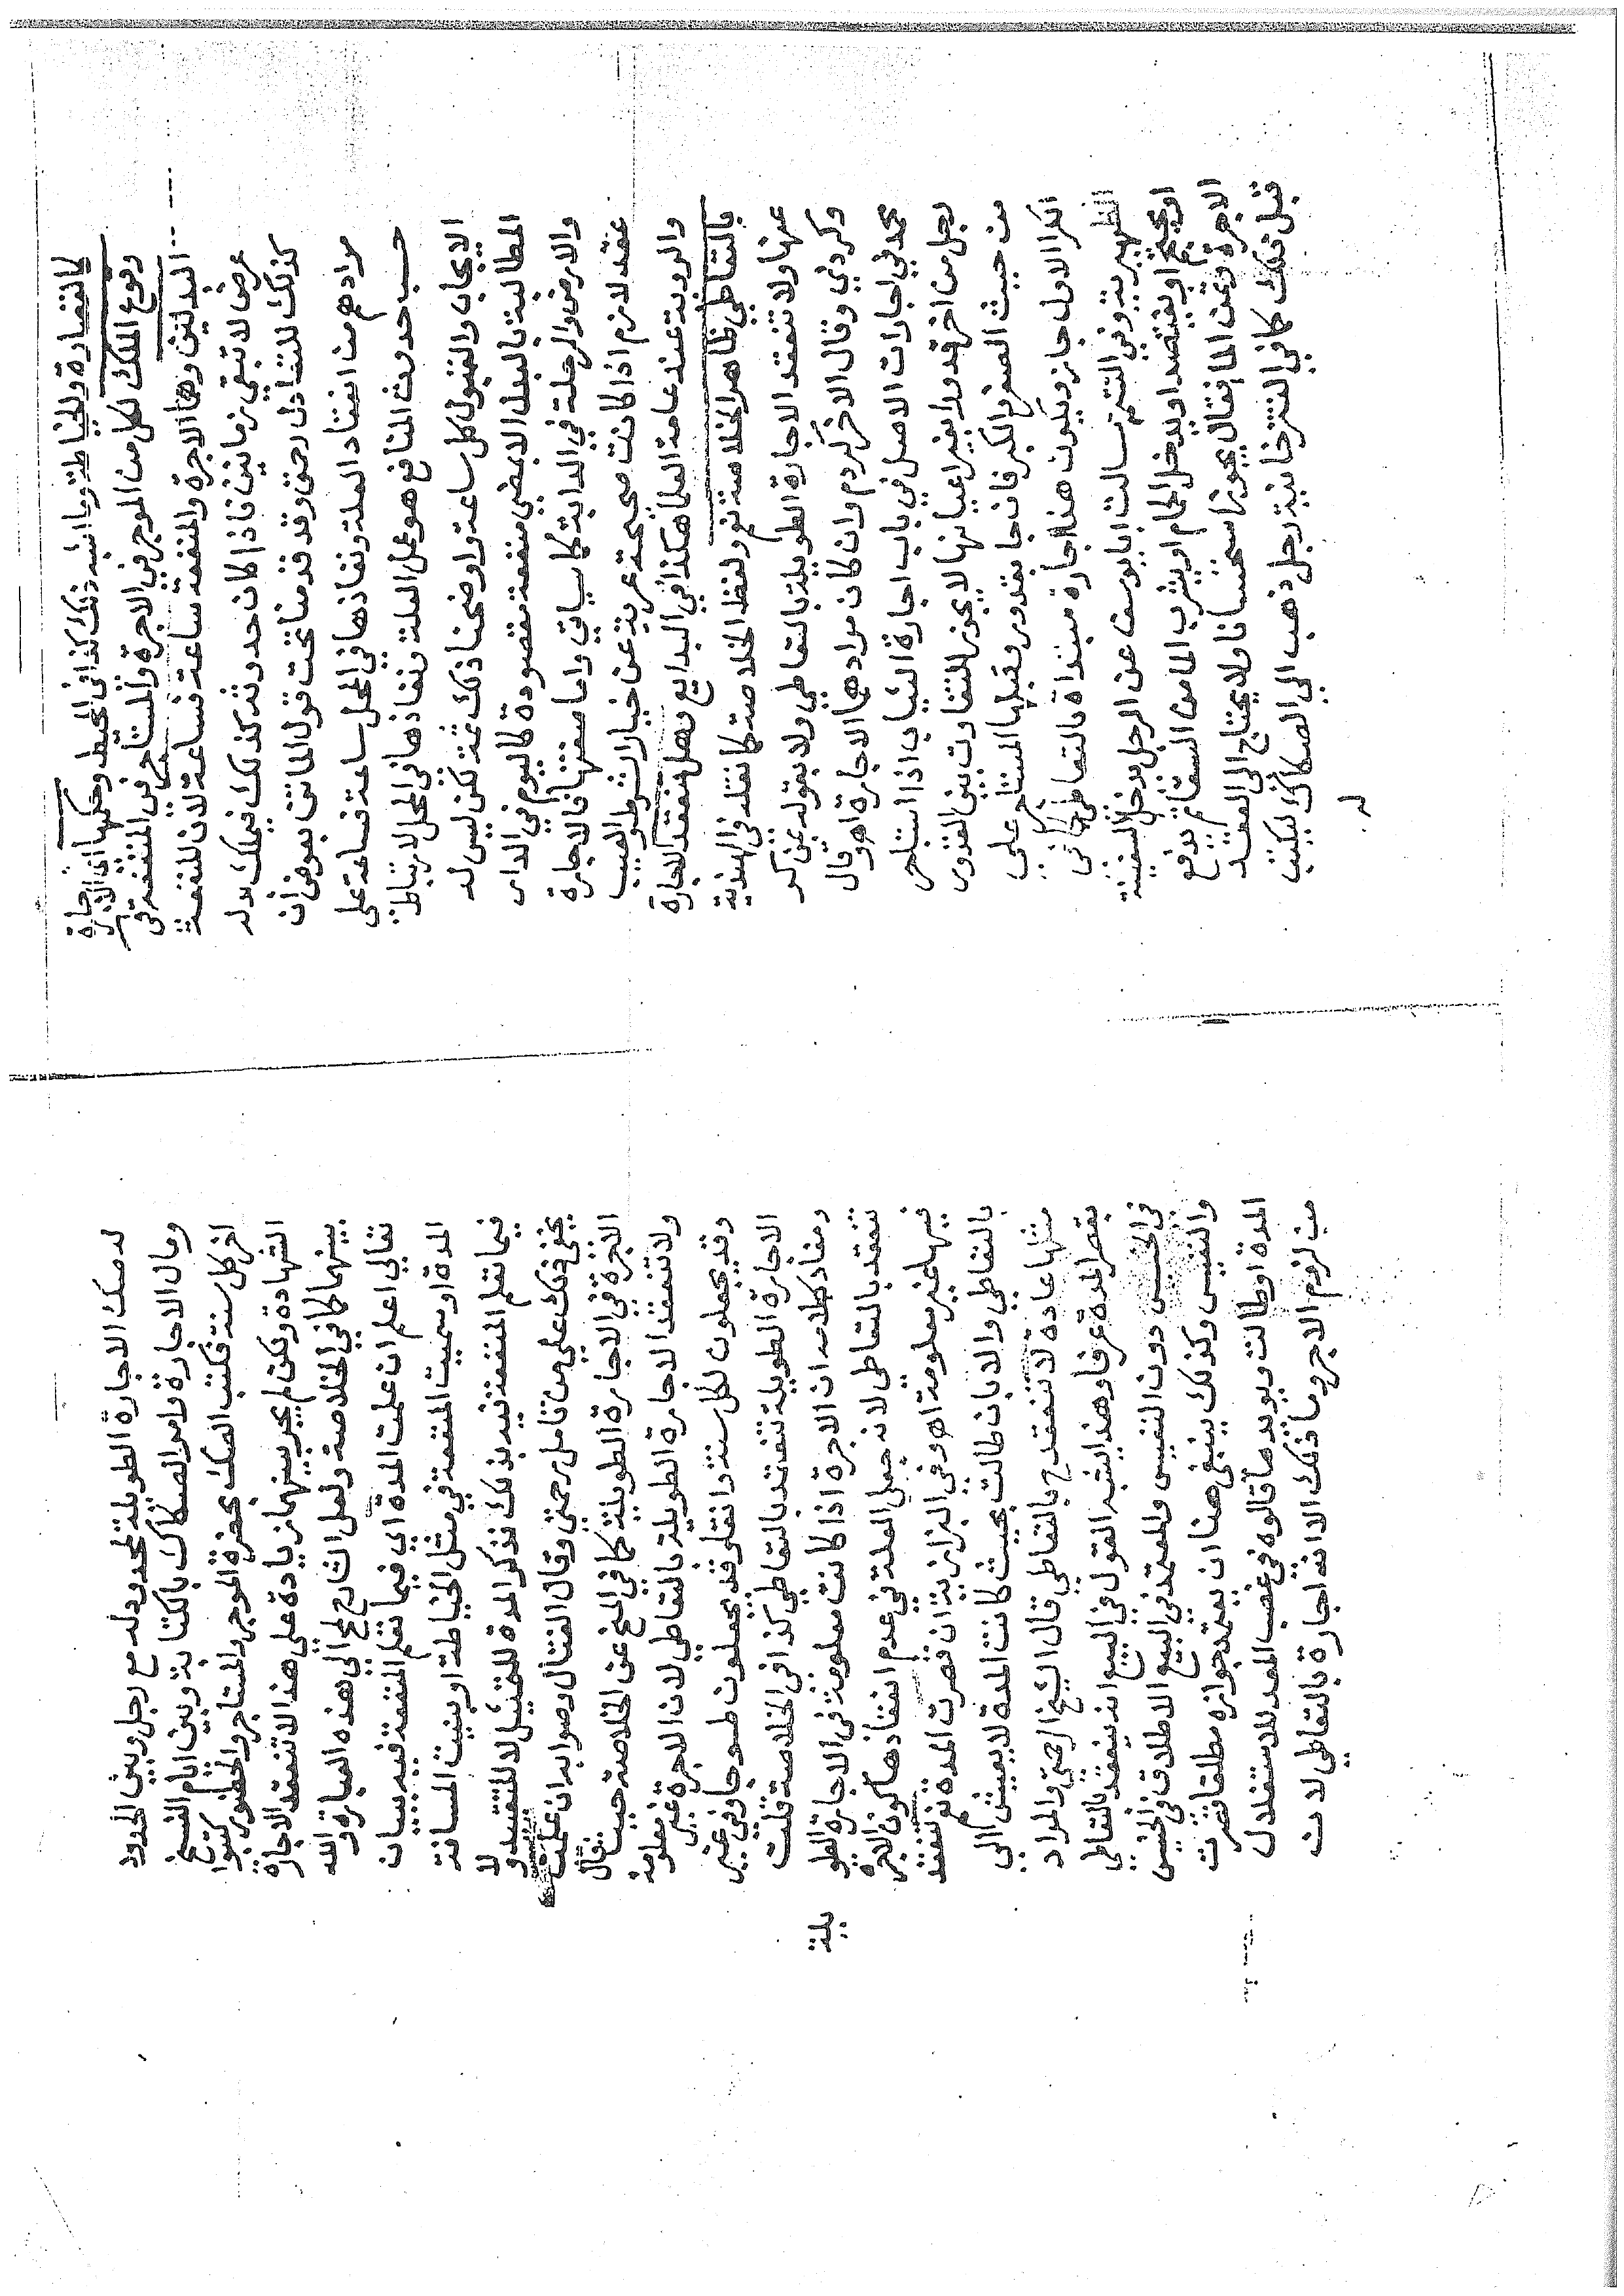 كالقصارة والخياطة وما اشبه ذلك كذا في المحيط وحكمها اي الاجارة
وقوع الملك لكل من الموجر في الاجرة والمستاجر في المنفعة في
البدلين وهما الاجرة والمنفعة ساعة فساعة لان المنفعة
عرض لا تبقى زمانين فاذا كان حدوثه كذلك فيملك بدله
كذلك للتعادل رحمتي وقد قدمناه تحت قول الماتن بعوض ان
مرادهم من انعقاد العلة ونفاذها في المحل ساعة فساعة على
حسب حدوث المنافع هو عمل العلة ونفاذها في المحل لا ارتباط
الايجاب والقبول كل ساعة واوضحنا ذلك ثمة لكن ليس له
المطالبة بالبدل الا بمضي منفعة مقصودة كاليوم في الدار
والارض والمرحلة في الدابة كما سياتي واما صفتها فالاجارة
عقد لازم اذا كانت صحيحة عرية عن خيار الشرط والعيب
والروية عند عامة العلما هكذا في البدايع وهل تنعقد الاجارة
بالتعاطي ظاهر الخلاصة نعم ولفظ الخلاصة كما نقله في الهندية
عنها ولا تنعقد الاجارة الطويلة بالتعاطي ولا بقوله عن كو
وكردي وقال الاخر كردم وان كان مرادهما الاجارة اهـ وقال
محمد في اجارات الاصل في باب اجارة الثياب اذا استاجر
رجل من اخر قدورا بغير اعيانها لا يجوز للتفاوت بين القدور
من حيث الصغر والكبر فان جا بقدور وقبلها المستاجر على
الكرا الاول جاز ويكون هذا اجارة مبتداة بالتعاطي كما في
الظهيرية وفي التتمة سالت ابا يوسف عن الرجل يدخل السفينة
او يحتجم او يفتصد او يدخل الحمام او يشرب الما من السقا ثم يدفع
الاجرة وثمن الما فقال يجوز استحسانا ولا يحتاج الى العقد
قبل ذلك كما في التترخانية رجل ذهب الى الصكاك ليكتب
له
له صك الاجارة الطويلة لمحدود له مع رجل وبين الحدود
ومال الاجارة وامر الصكاك بالكتابة وبين ايام الفسخ
اخر كل سنة فكتب الصك بحضرة الموجر والمستاجر والحضور كتبوا
الشهادة ولكن لم يجر بينهما زيادة على هذا لا تنعقد الاجارة
بينهما كما في الخلاصة ولعل الشارح لمح الى هذه العبارة والله
تعالى اعلم ان علمت المدة اي فيما تقدم المنفعة فيه ببيان
المدة او سميت المنفعة في مثل الخياطة او بينت المسافة
فيما تقدم المنفعة فيه بذلك فذكر المدة للتمثيل لا للتقييد ولا
يخفى ذلك على من تامل رحمتي وقال الفتال صوابه ان علمت
الاجرة في الاجارة الطويلة كما في المنح عن الخلاصة حيث قال
ولا تنعقد الاجارة الطويلة بالتعاطي لان الاجرة غير معلومة
وقد يجعلون لكل سنة دانقا وقد يجعلون طسوجا وفي غير
الاجارة الطويلة تنعقد بالتعاطي كذا في الخلاصة قلت
ومفاد كلامه ان الاجرة اذا كانت معلومة في الاجارة الطو
يلة
تنعقد بالتعاطي لانه جعل العلة في عدم انعقادها كون الاجرة
فيها غير معلومة اهـ وفي البزازية ان قصرت المدة نعم تنعقد
بالتعاطي والا بان طالت بحيث كانت المدة لا يعيش الى
مثلها عادة لا تنعقد ح بالتعاطي قال الشيخ الرحمتي والمراد
بقصر المدة عرفا وهذا يشبه القول في البيع انه ينعقد بالتعاطي
في الخسيس دون النفيس والمعتمد في البيع الاطلاق في الخسيس
والنفيس وكذلك ينبغي هنا ان يعتمد جوازه مطلقا قصرت
المدة او طالت ويويده ما قالوه في غصب المعد للاستغلال
من لزوم الاجر وما ذلك الا انه اجارة بالتعاطي لان